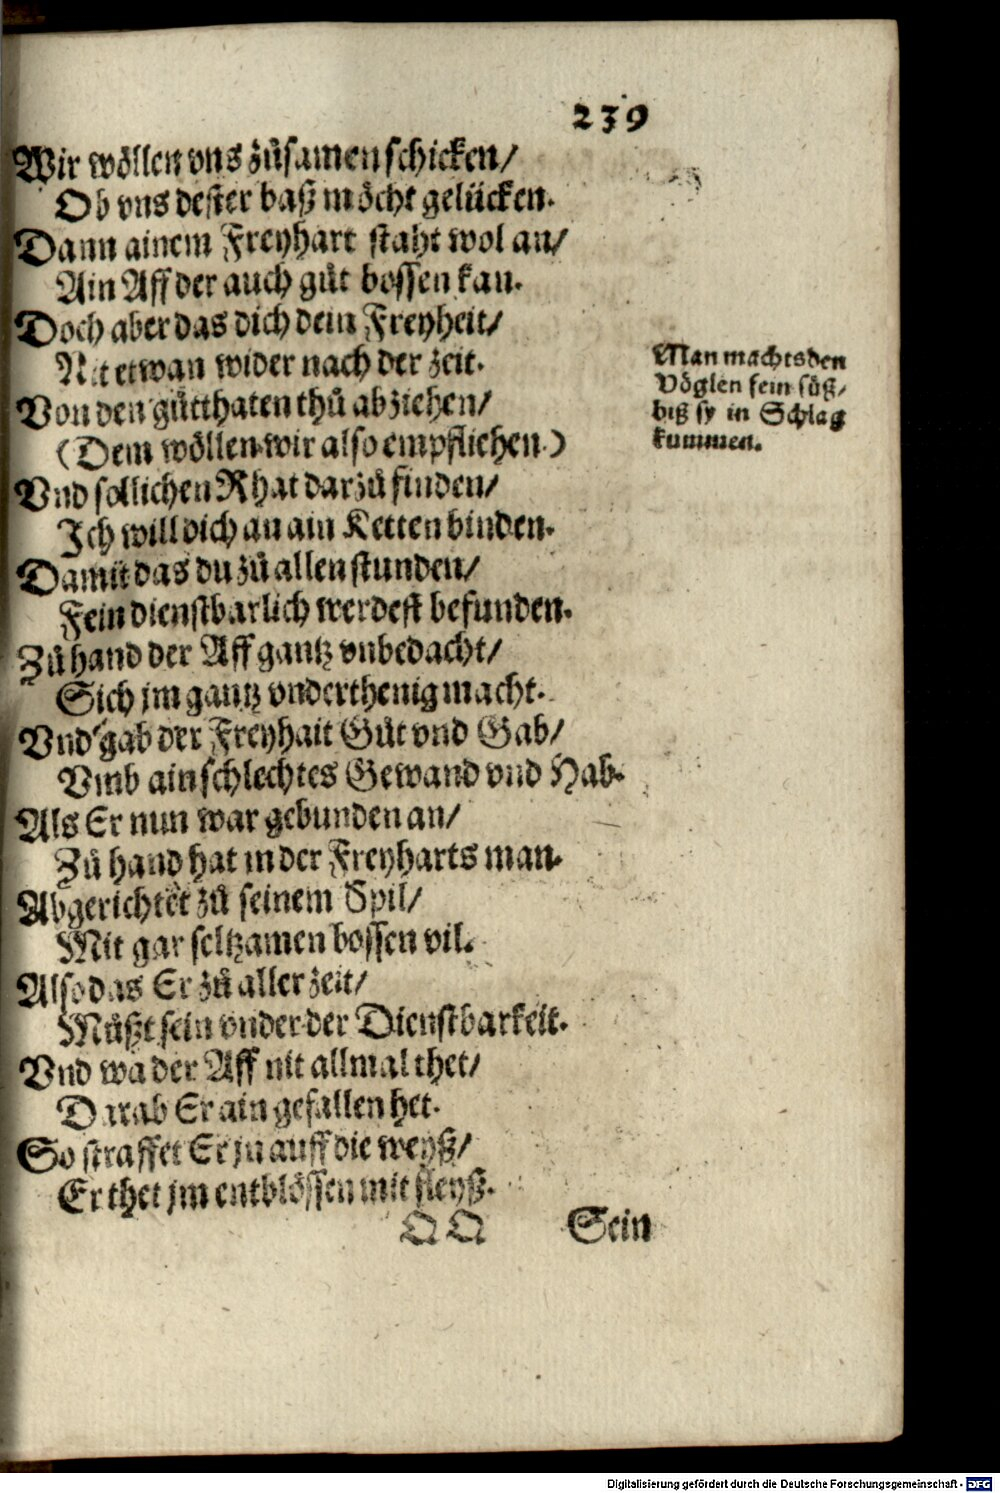 239
Wir wöllen vns zůsamen schicken/
Ob vns dester baß möcht gelücken.
Dann ainem Freyhart staht wol an/
Ain Aff der auch gůt bossen kan.
Doch aber das dich dein Freyheit/
Nit etwan wider nach der zeit.
Von den gůtthaten thů abziehen/
(Dem wöllen wir also empfliehen.)
Vnd sollichen Rhat darzů finden/
Ich will dich an ain Ketten binden.
Damit das du zů allen stunden/
Fein dienstbarlich werdest befunden.
Zů hand der Aff gantz vnbedacht/
Sich jm gantz vnderthenig macht.
Vnd gab der Freyhait Gůt vnd Gab/
Vmb ain schlechtes Gewand vnd Hab.
Als Er nun war gebunden an/
Zů hand hat in der Freyharts man.
Abgerichtet zů seinem Spil/
Mit gar seltzamen bossen vil.
Also das Er zů aller zeit/
Můßt sein vnder der Dienstbarkeit.
Vnd wa der Aff nit allmal thet/
Darab Er ain gefallen het.
So straffet Er jn auff die weyß/
Er thet jm entblössen mit fleyß.
Man machts den
Vöglen fein süß/
biß sy in Schlag
kummen.
QQ Sein
Digitalisierung gefördert durch die Deutsche Forschungsgemeinschaft - DFG